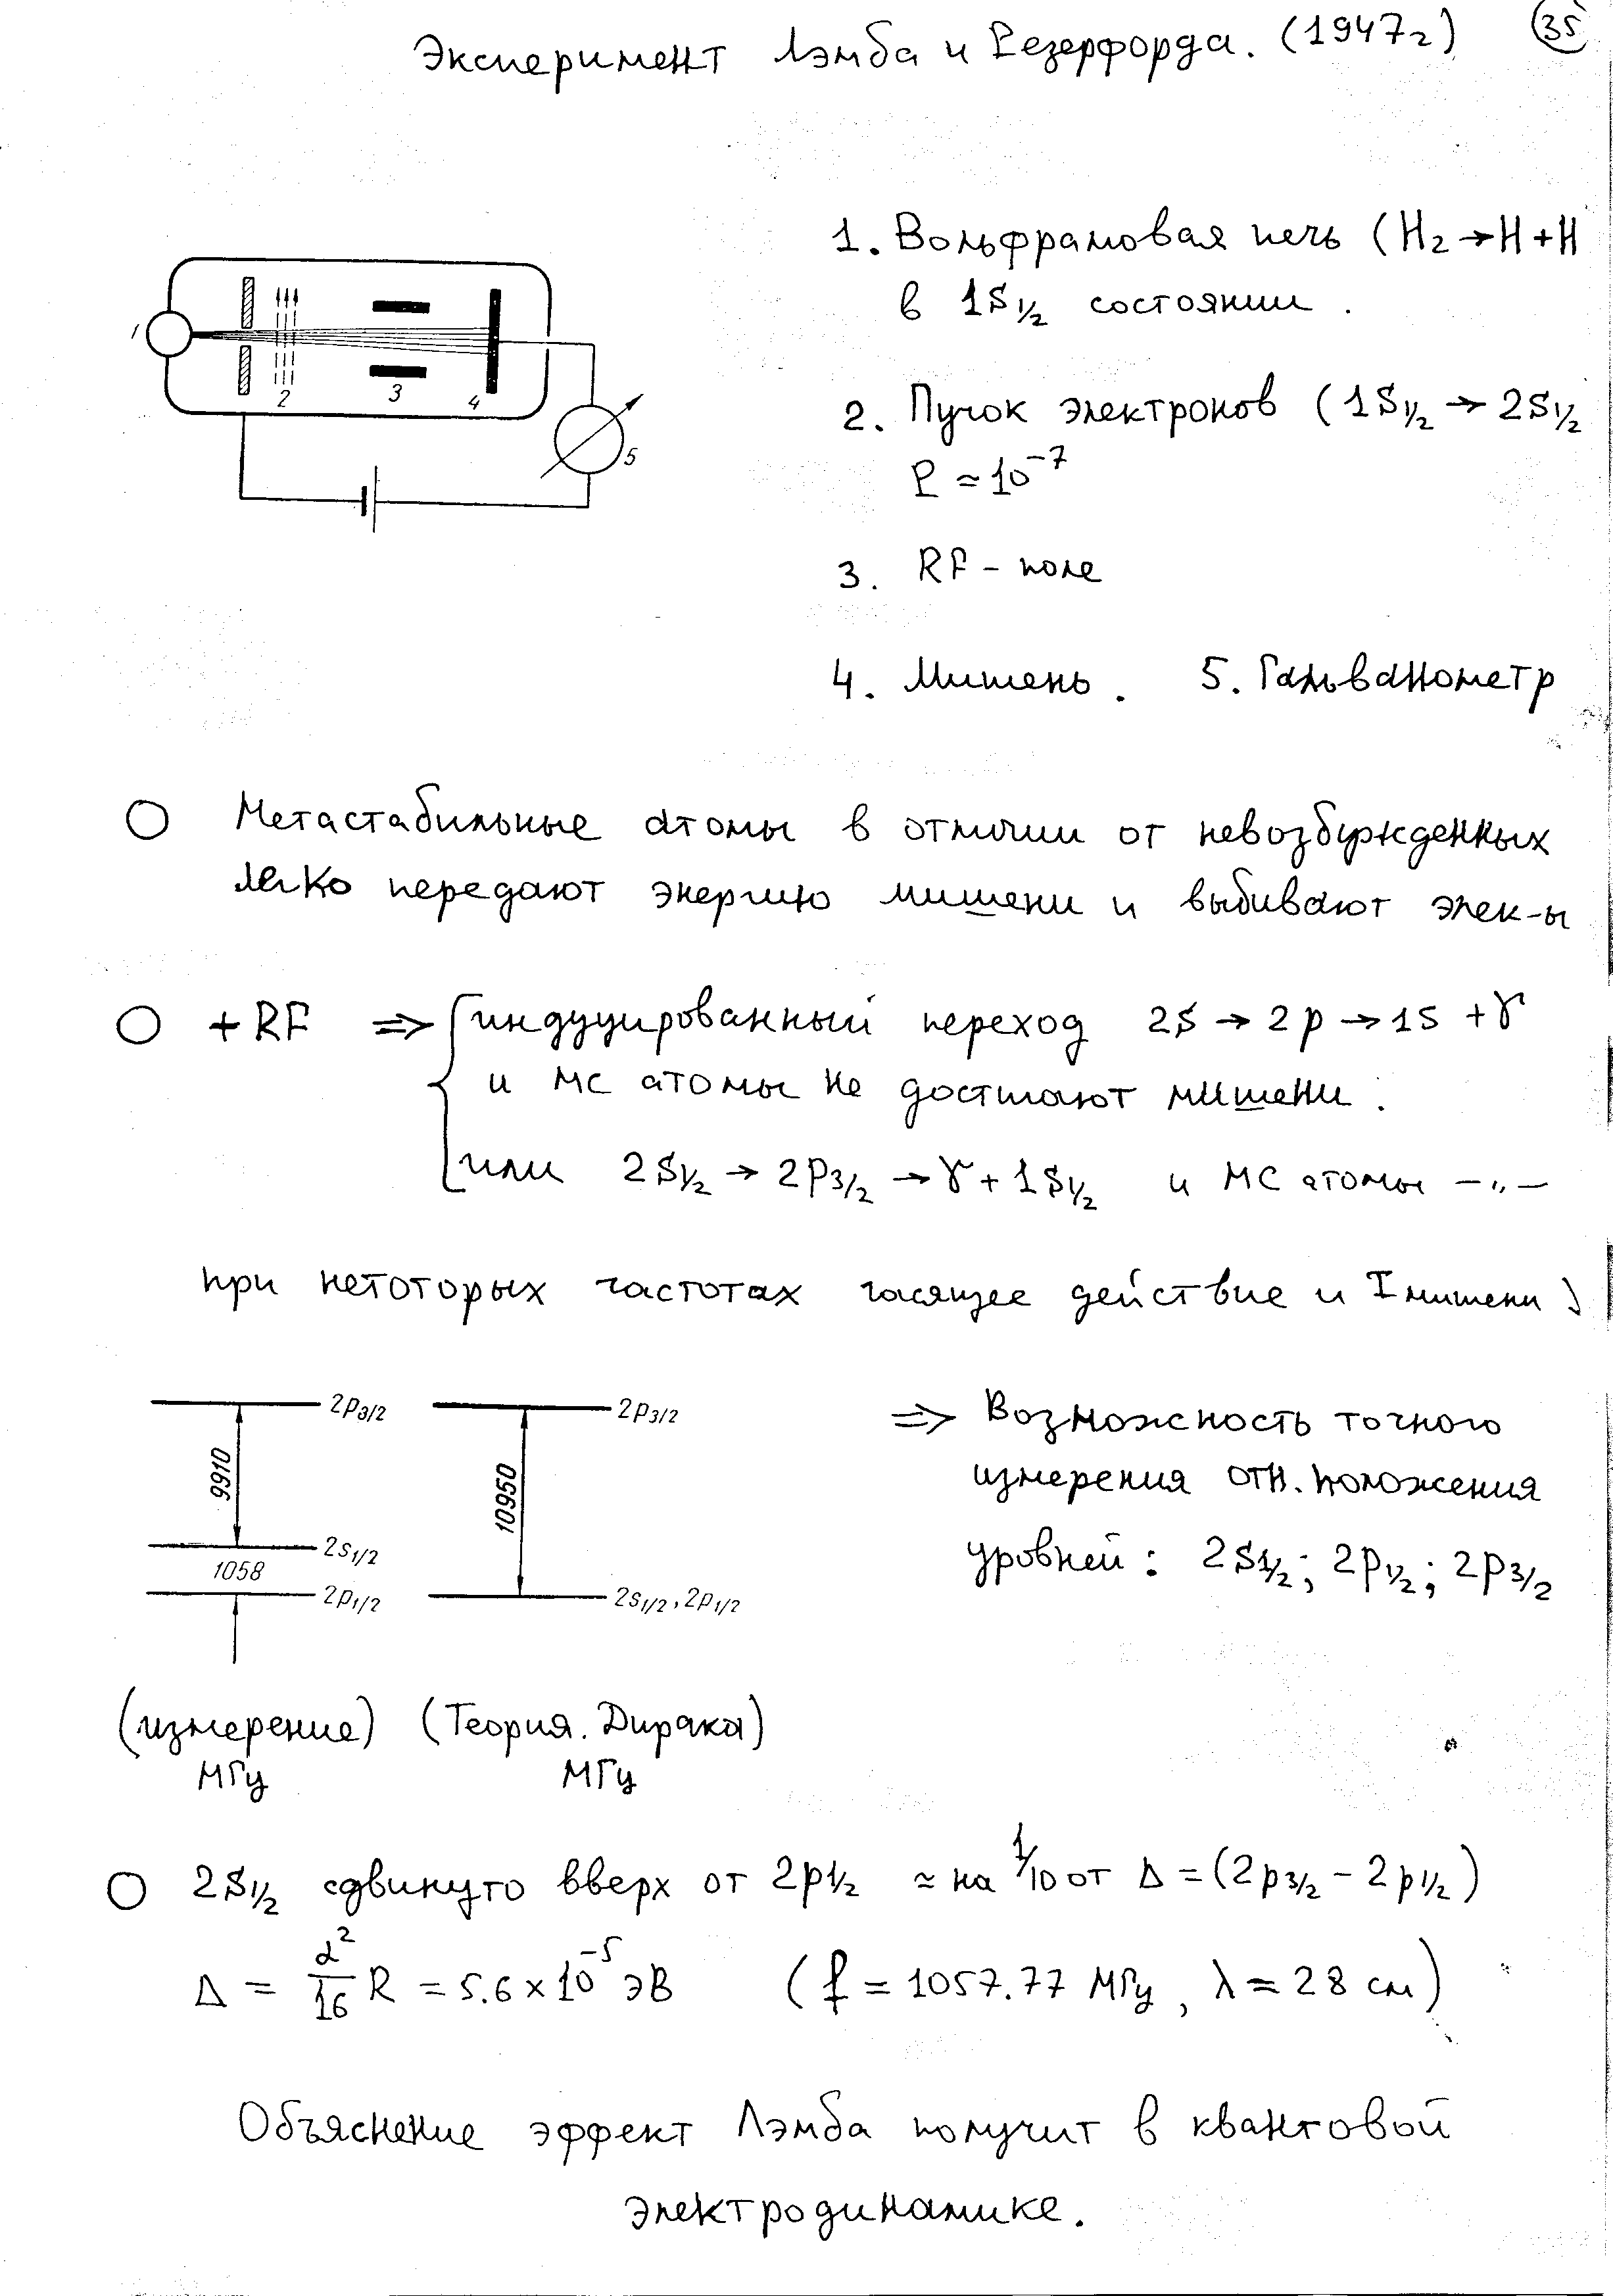 Эксперимент Лэмба и Резерфорда. (1947г) 35
1. Вольфрамовая печь (H₂→H+H
в 1S₁/₂ состоянии.
2. Пучок электронов (1S₁/₂ → 2S₁/₂
P ≃ 10⁻⁷
3. RF - поле
4. Мишень. 5. Гальванометр
1
2
3
4
5
Метастабильные атомы в отличии от невозбужденных
легко передают энергию мишени и выбивают элек-ы
+RF ⇒ индуцированный переход 2S → 2p → 1S + γ
и МС атомы не достигают мишени.
или 2S₁/₂ → 2p₃/₂ → γ + 1S₁/₂ и МС атомы –〃–
при некоторых частотах гасящее действие и I мишени ↘
2p₃/₂
2p₃/₂
9910
10950
2s₁/₂
1058
2p₁/₂
2s₁/₂, 2p₁/₂
⇒ Возможность точного
измерения отн. положения
уровней: 2S₁/₂; 2p₁/₂; 2p₃/₂
(измерение) (Теория. Дирака)
МГц МГц
2S₁/₂ сдвинуто вверх от 2p₁/₂ ≃ на 1/10 от Δ = (2p₃/₂ - 2p₁/₂)
Δ = α²/16 R = 5.6 × 10⁻⁵ эВ (f = 1057.77 МГц, λ = 28 см)
Объяснение эффект Лэмба получит в квантовой
электродинамике.